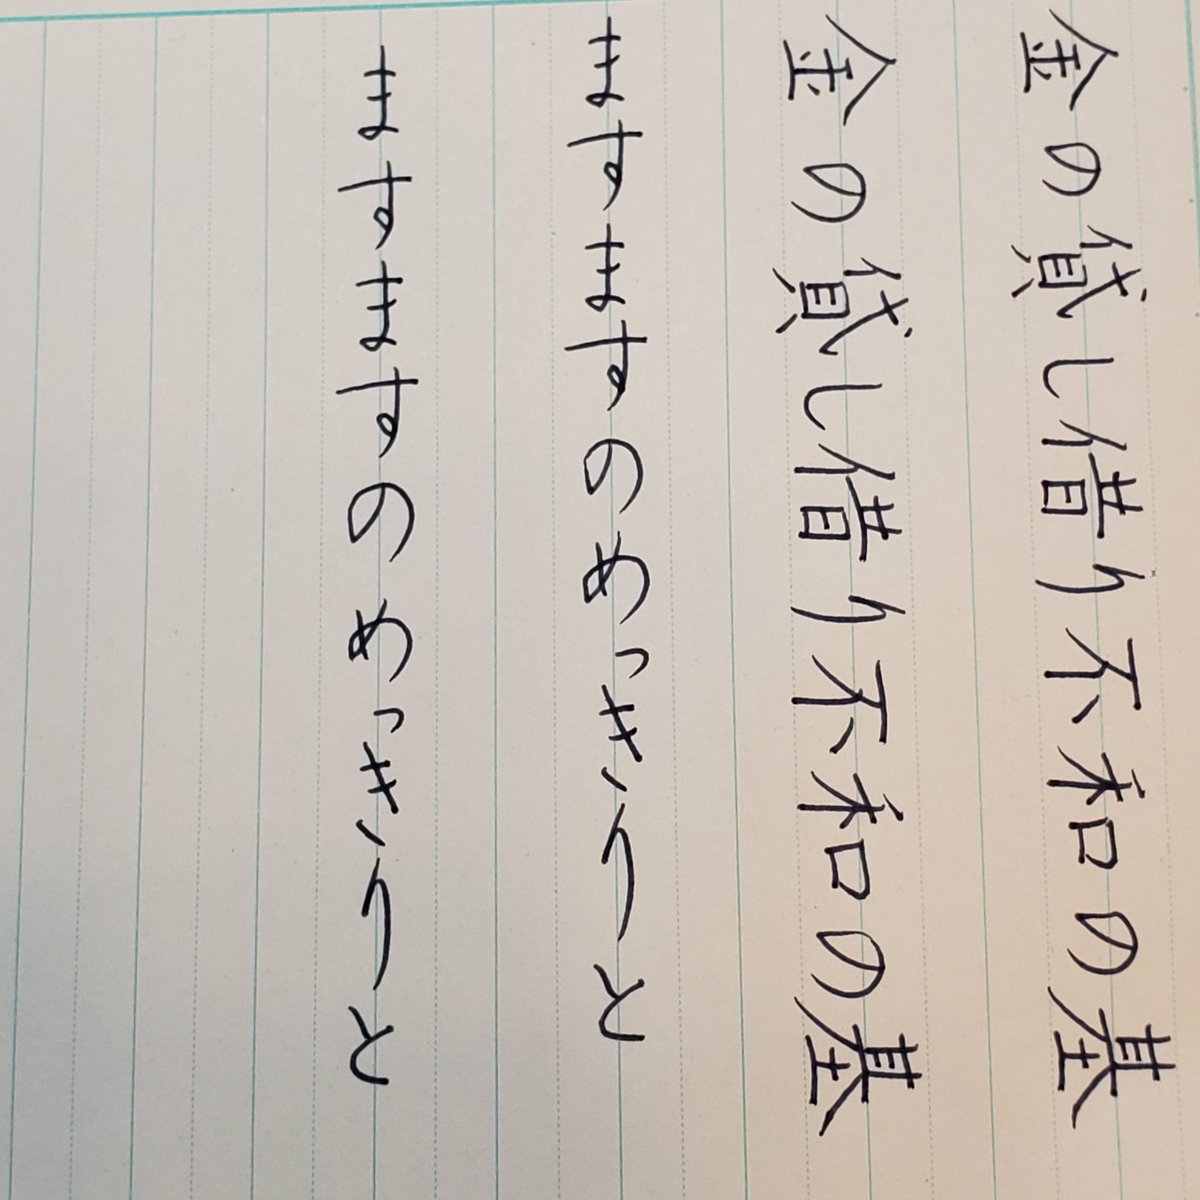 金の貸し借り不和の基
金の貸し借り不和の基
ますますのめっきりと
ますますのめっきりと